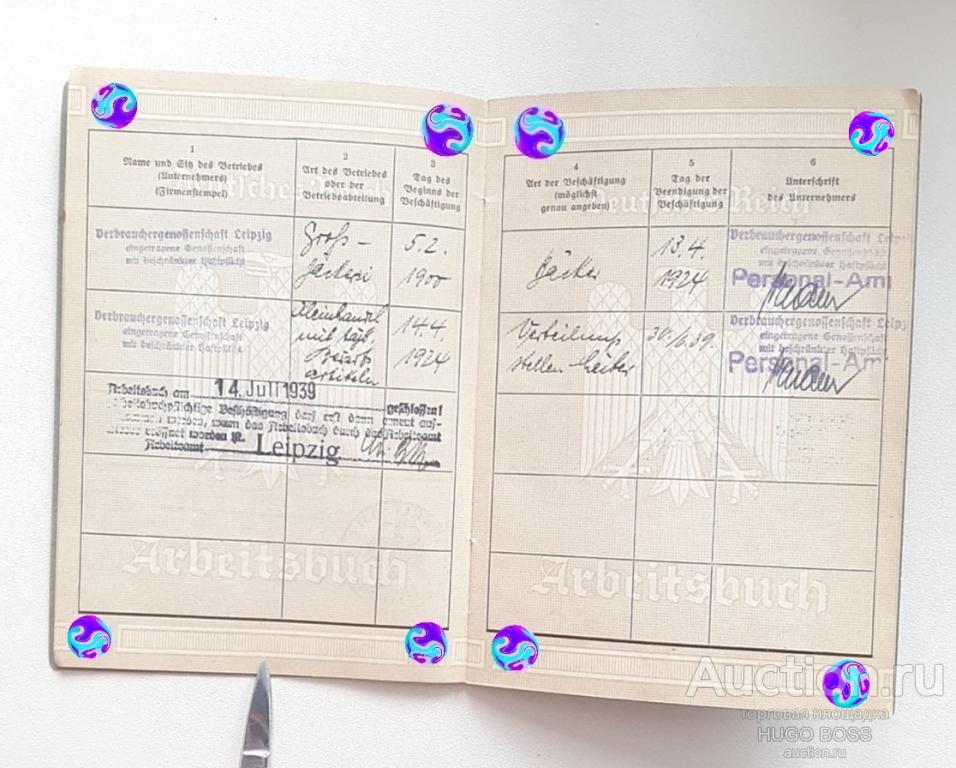 1
Name und Sitz des Betriebes
(Unternehmers)
(Firmenstempel)
2
Art des Betriebes
oder der
Betriebsabteilung
3
Tag des
Beginns der
Beschäftigung
Verbrauchergenossenschaft Leipzig
eingetragene Genossenschaft
mit beschränkter Haftpflicht
Groß-
bäckerei
5.2.
1900
Verbrauchergenossenschaft Leipzig
eingetragene Genossenschaft
mit beschränkter Haftpflicht
Kleinhandel
mit
artikeln
14.4.
1924
Arbeitsbuch am 14. Juli 1939 geschlossen!
Arbeitsbuchpflichtige Beschäftigung darf erst dann erneut auf-
genommen werden, wenn das Arbeitsbuch durch das Arbeitsamt
wieder eröffnet worden ist.
Arbeitsamt Leipzig
Deutsches Reich
Arbeitsbuch
4
Art der Beschäftigung
(möglichst
genau angeben)
5
Tag der
Beendigung der
Beschäftigung
6
Unterschrift
des Unternehmers
Bäcker
13.4.
1924
Verbrauchergenossenschaft Leipzig
eingetragene Genossenschaft
mit beschränkter Haftpflicht
Personal-Amt
Verteilungs
stellen-leiter
30.6.39.
Verbrauchergenossenschaft Leipzig
eingetragene Genossenschaft
mit beschränkter Haftpflicht
Personal-Amt
Deutsches Reich
Arbeitsbuch
Auction.ru
торговая площадка
HUGO BOSS
auction.ru